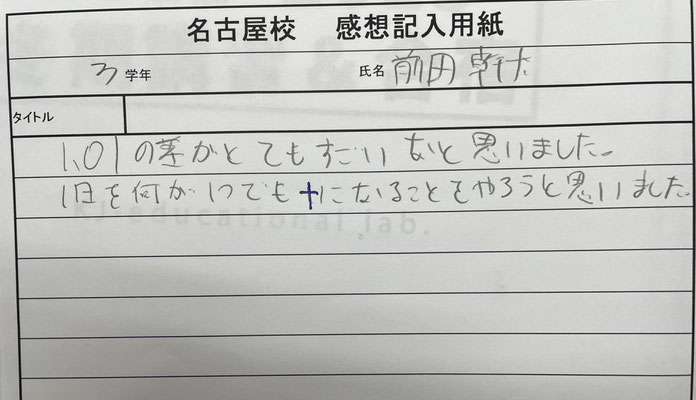 名古屋校 感想記入用紙
3 学年 氏名 前田 幹太
タイトル
1.01の差がとてもすごいなと思いました。
1日を何か1つでも+になることをやろうと思いました。
educational lab.